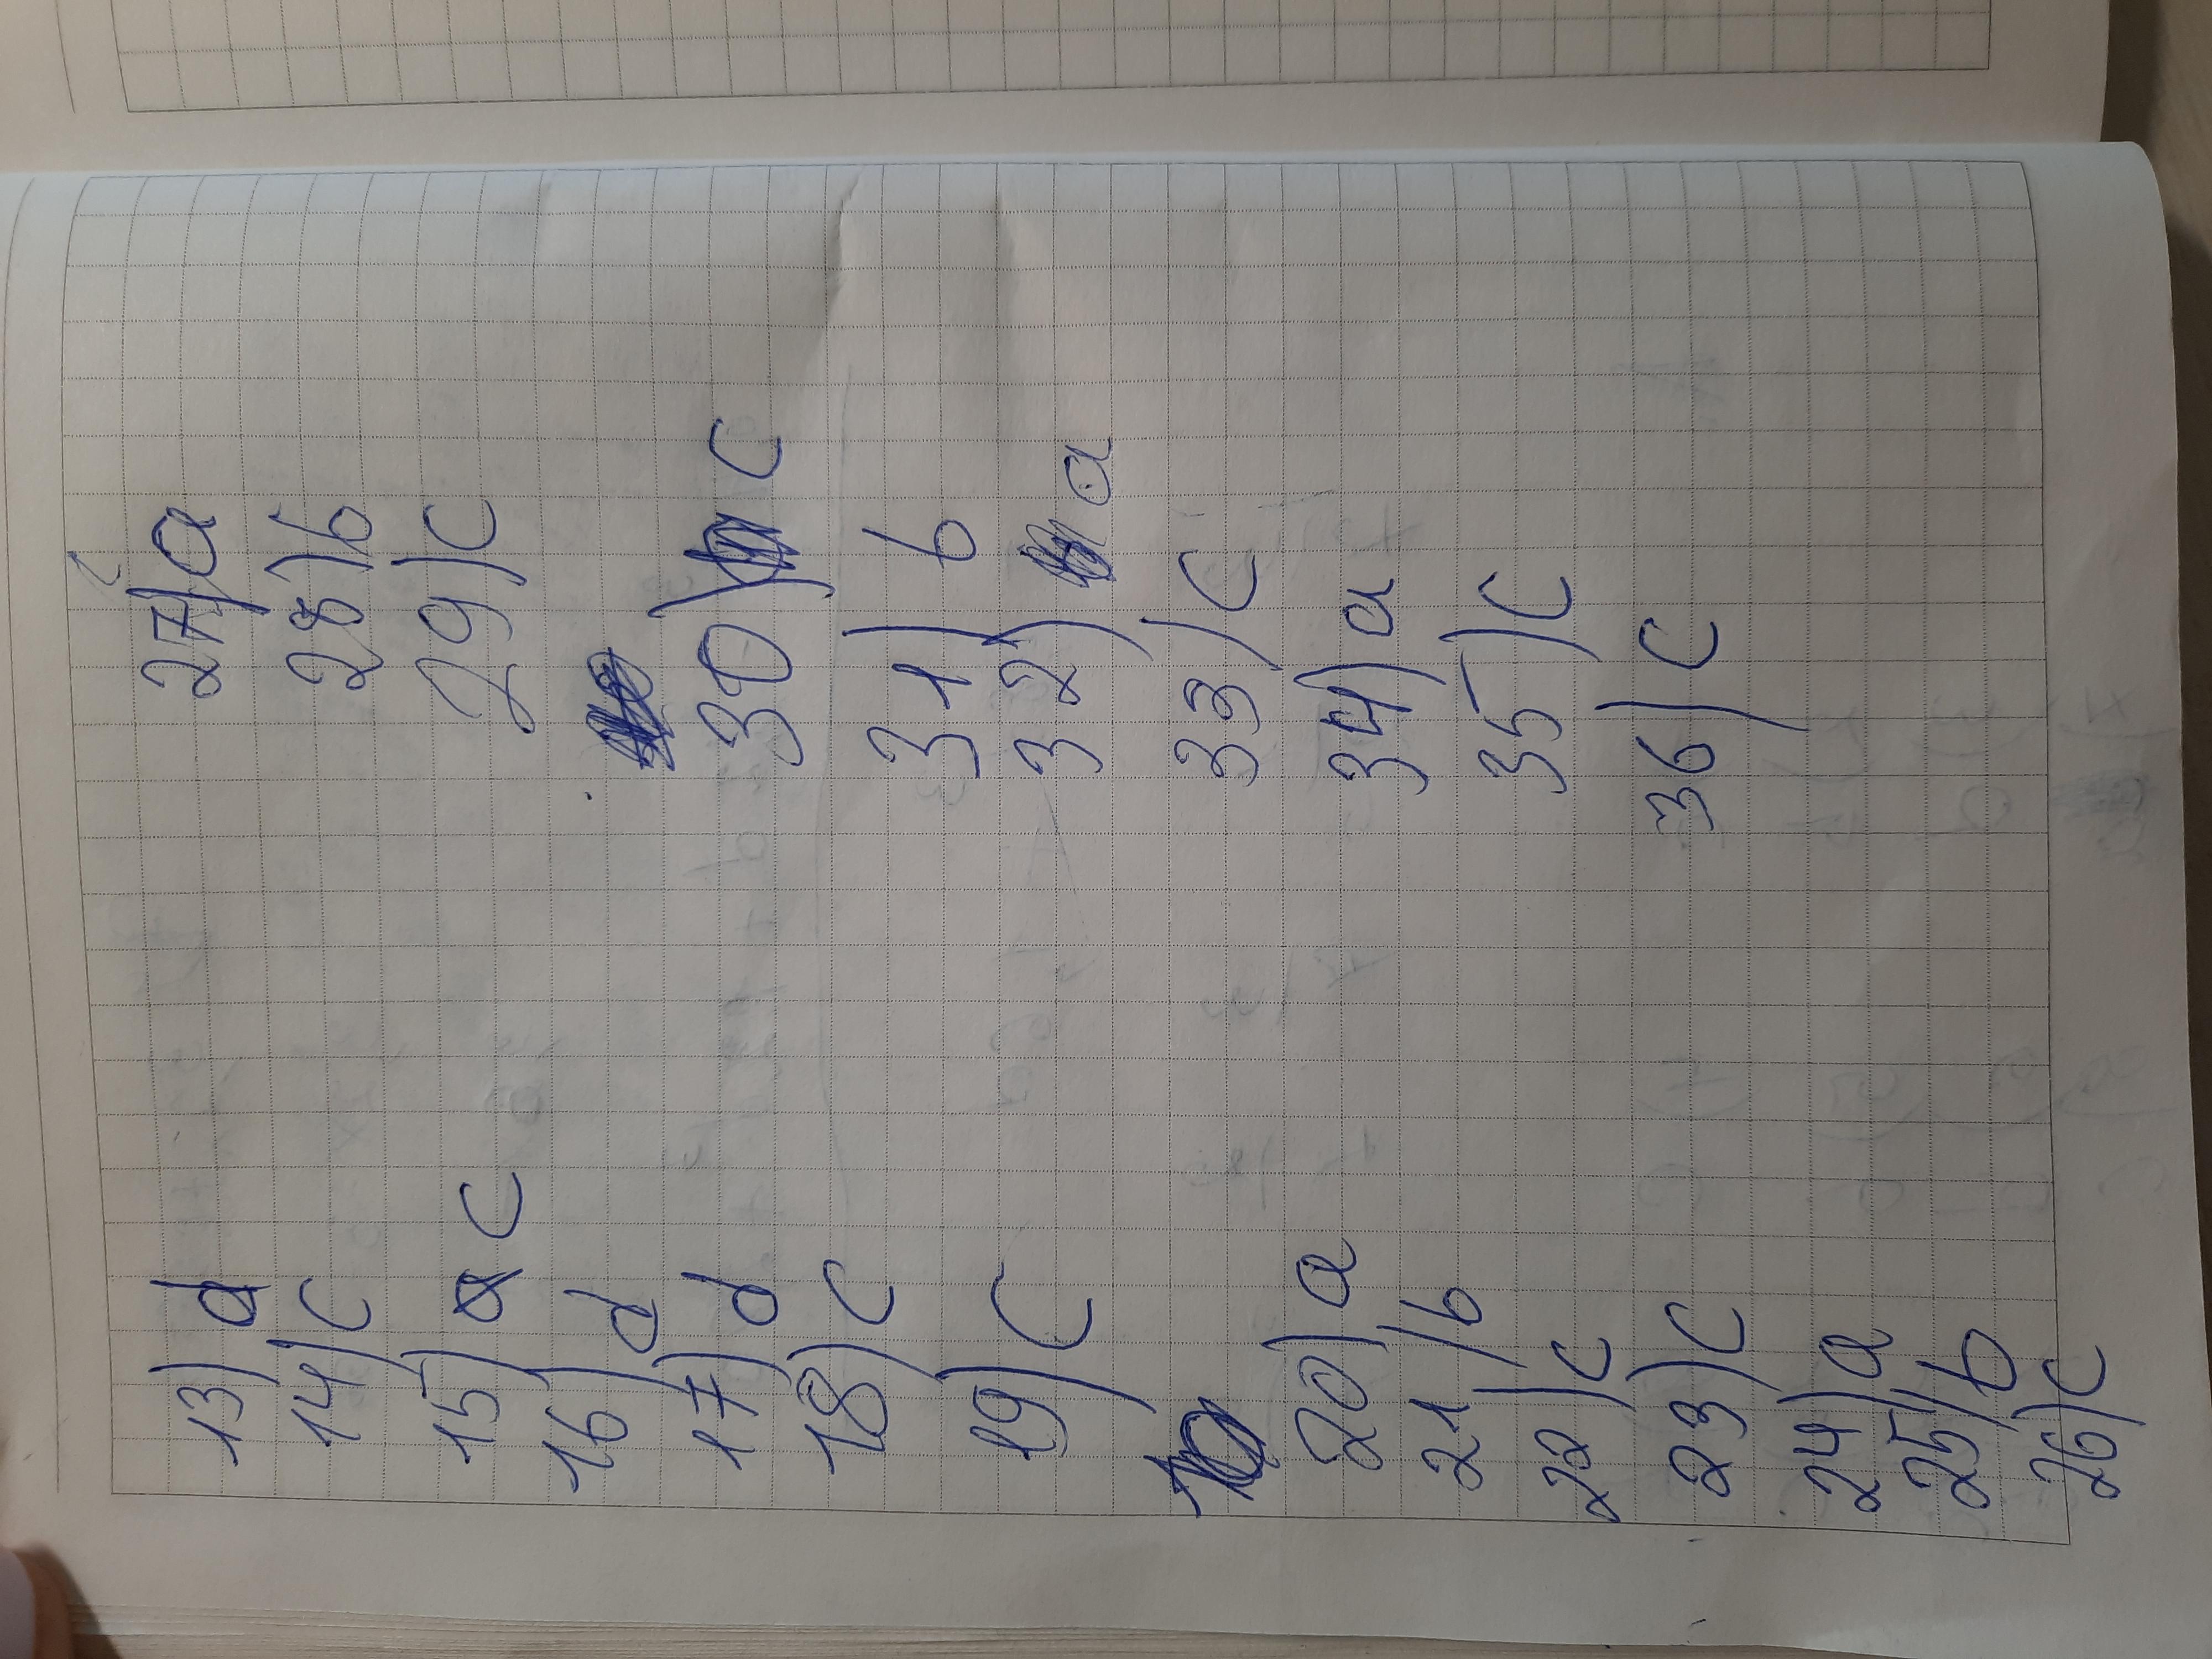 13) d
14) c
15) c
16) d
17) d
18) c
19) c
20) a
21) b
22) c
23) c
24) a
25) b
26) c
27) a
28) b
29) c
30) c
31) b
32) a
33) c
34) a
35) c
36) c